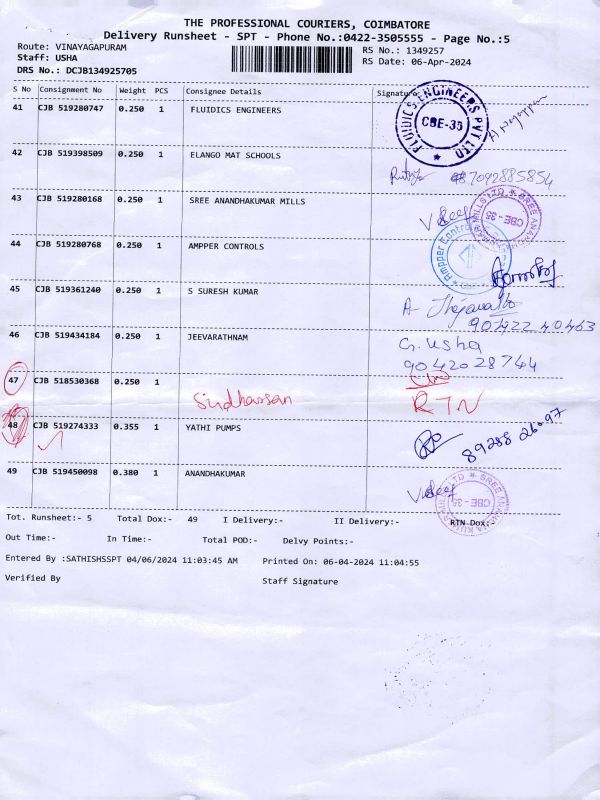 THE PROFESSIONAL COURIERS, COIMBATORE
Delivery Runsheet - SPT - Phone No.:0422-3505555 - Page No.:5
Route: VINAYAGAPURAM
RS No.: 1349257
Staff: USHA
RS Date: 06-Apr-2024
DRS No.: DCJB134925705
S No Consignment No Weight PCS Consignee Details Signature
41 CJB 519280747 0.250 1 FLUIDICS ENGINEERS
FLUIDICS ENGINEERS PVT LTD
CBE-35
42 CJB 519398509 0.250 1 ELANGO MAT SCHOOLS
7092885854
43 CJB 519280168 0.250 1 SREE ANANDHAKUMAR MILLS
CBE - 35
44 CJB 519280768 0.250 1 AMPPER CONTROLS
Ampper Control
45 CJB 519361240 0.250 1 S SURESH KUMAR
46 CJB 519434184 0.250 1 JEEVARATHNAM
G. Usha
9042028744
47 CJB 518530368 0.250 1
RTN
48 CJB 519274333 0.355 1 YATHI PUMPS
49 CJB 519450098 0.380 1 ANANDHAKUMAR
CBE - 35
Tot. Runsheet:- 5 Total Dox:- 49 I Delivery:- II Delivery:- RTN Dox:-
Out Time:- In Time:- Total POD:- Delvy Points:-
Entered By :SATHISHSSPT 04/06/2024 11:03:45 AM Printed On: 06-04-2024 11:04:55
Verified By Staff Signature